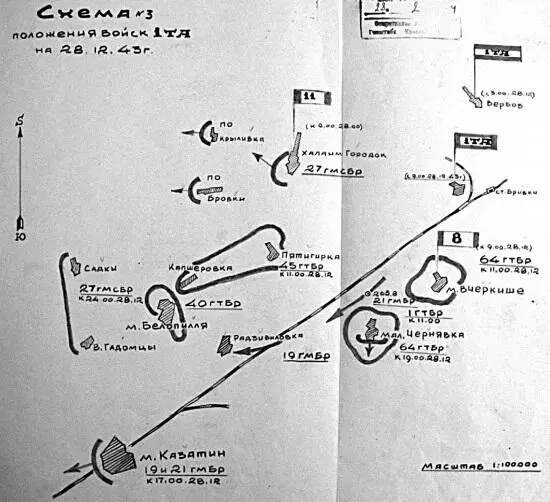 Схема №3
положения войск 1ТА
на 28.12.43г.
1ТА
(с 5.00.28.12)
Вербов
11
ПО
Крыливка
Халаим Городок
27 гмсбр
1ТА
ст. Бровки
ПО
Бровки
8
(к 9.00.28.12)
64 гтбр
к 11.00.28.12
м. Вчеркише
Пятигирка
45 гтбр
к 11.00.28.12
Капшеровка
Садки
27 гмсбр
к 24.00.28.12
40 гтбр
м. Белопилля
21 гмбр
1 гтбр
к 11.00
Мал. Чернявка
64 гтбр
к 19.00.28.12
В. Гадомцы
Радзивиловка
19 гмбр
м. Казатин
19 и 21 гмбр
к 17.00.28.12
Масштаб 1:100000
С
Ю